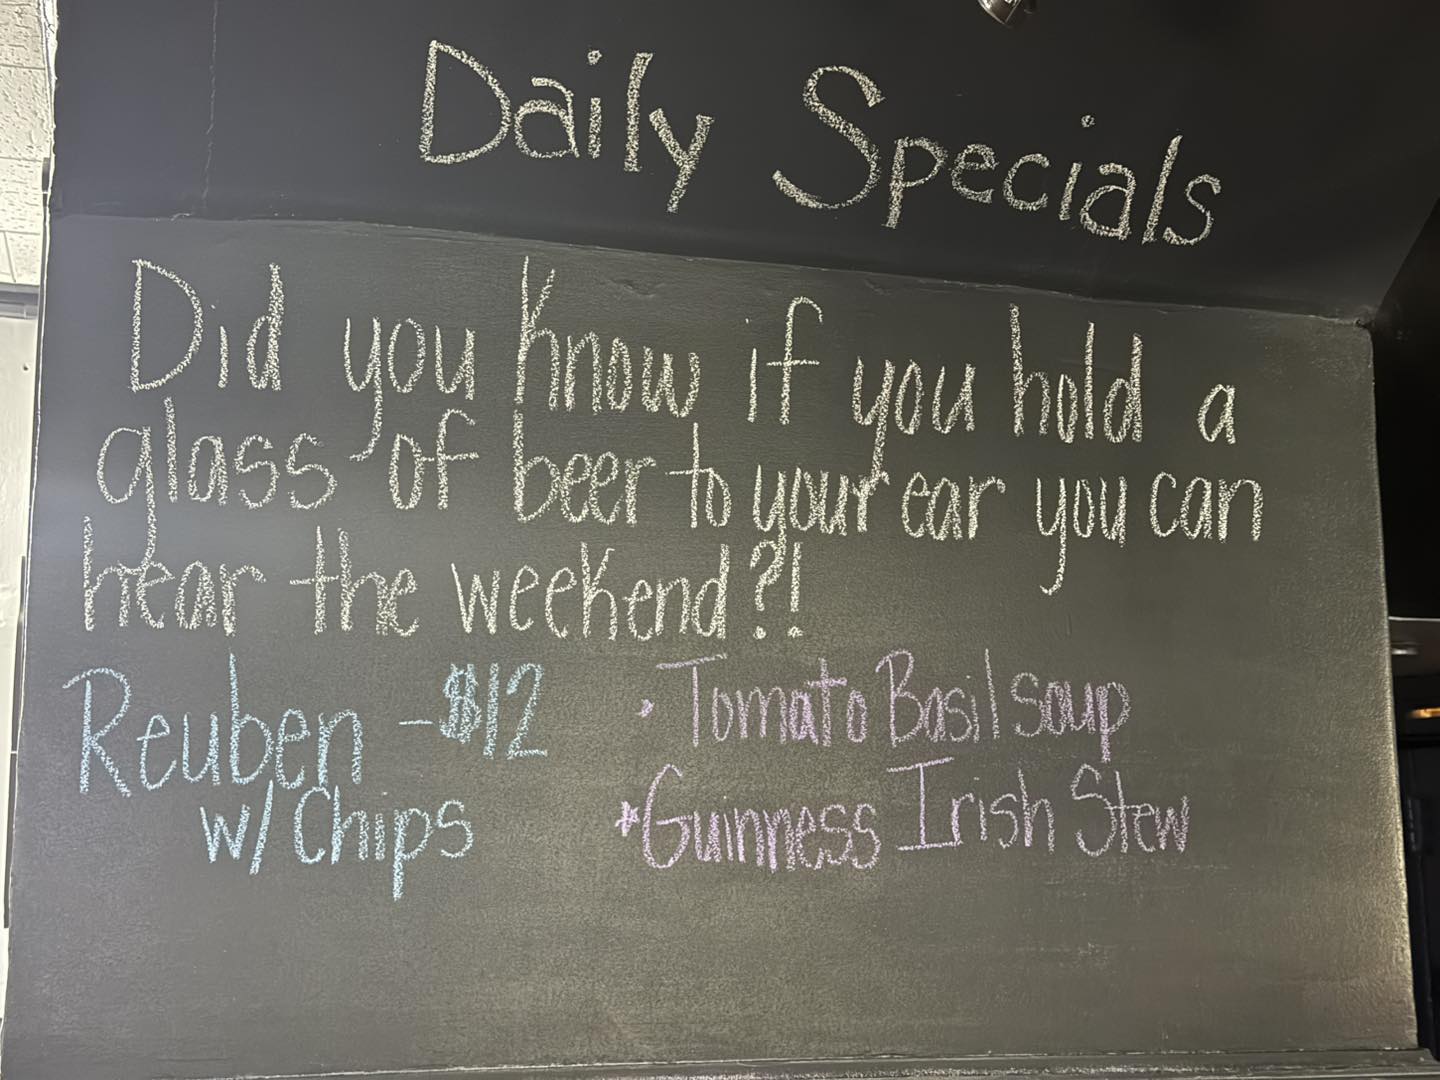 Daily Specials
Did you know if you hold a
glass of beer to your ear you can
hear the weekend?!
Reuben - $12
w/ Chips
• Tomato Basil soup
* Guinness Irish Stew